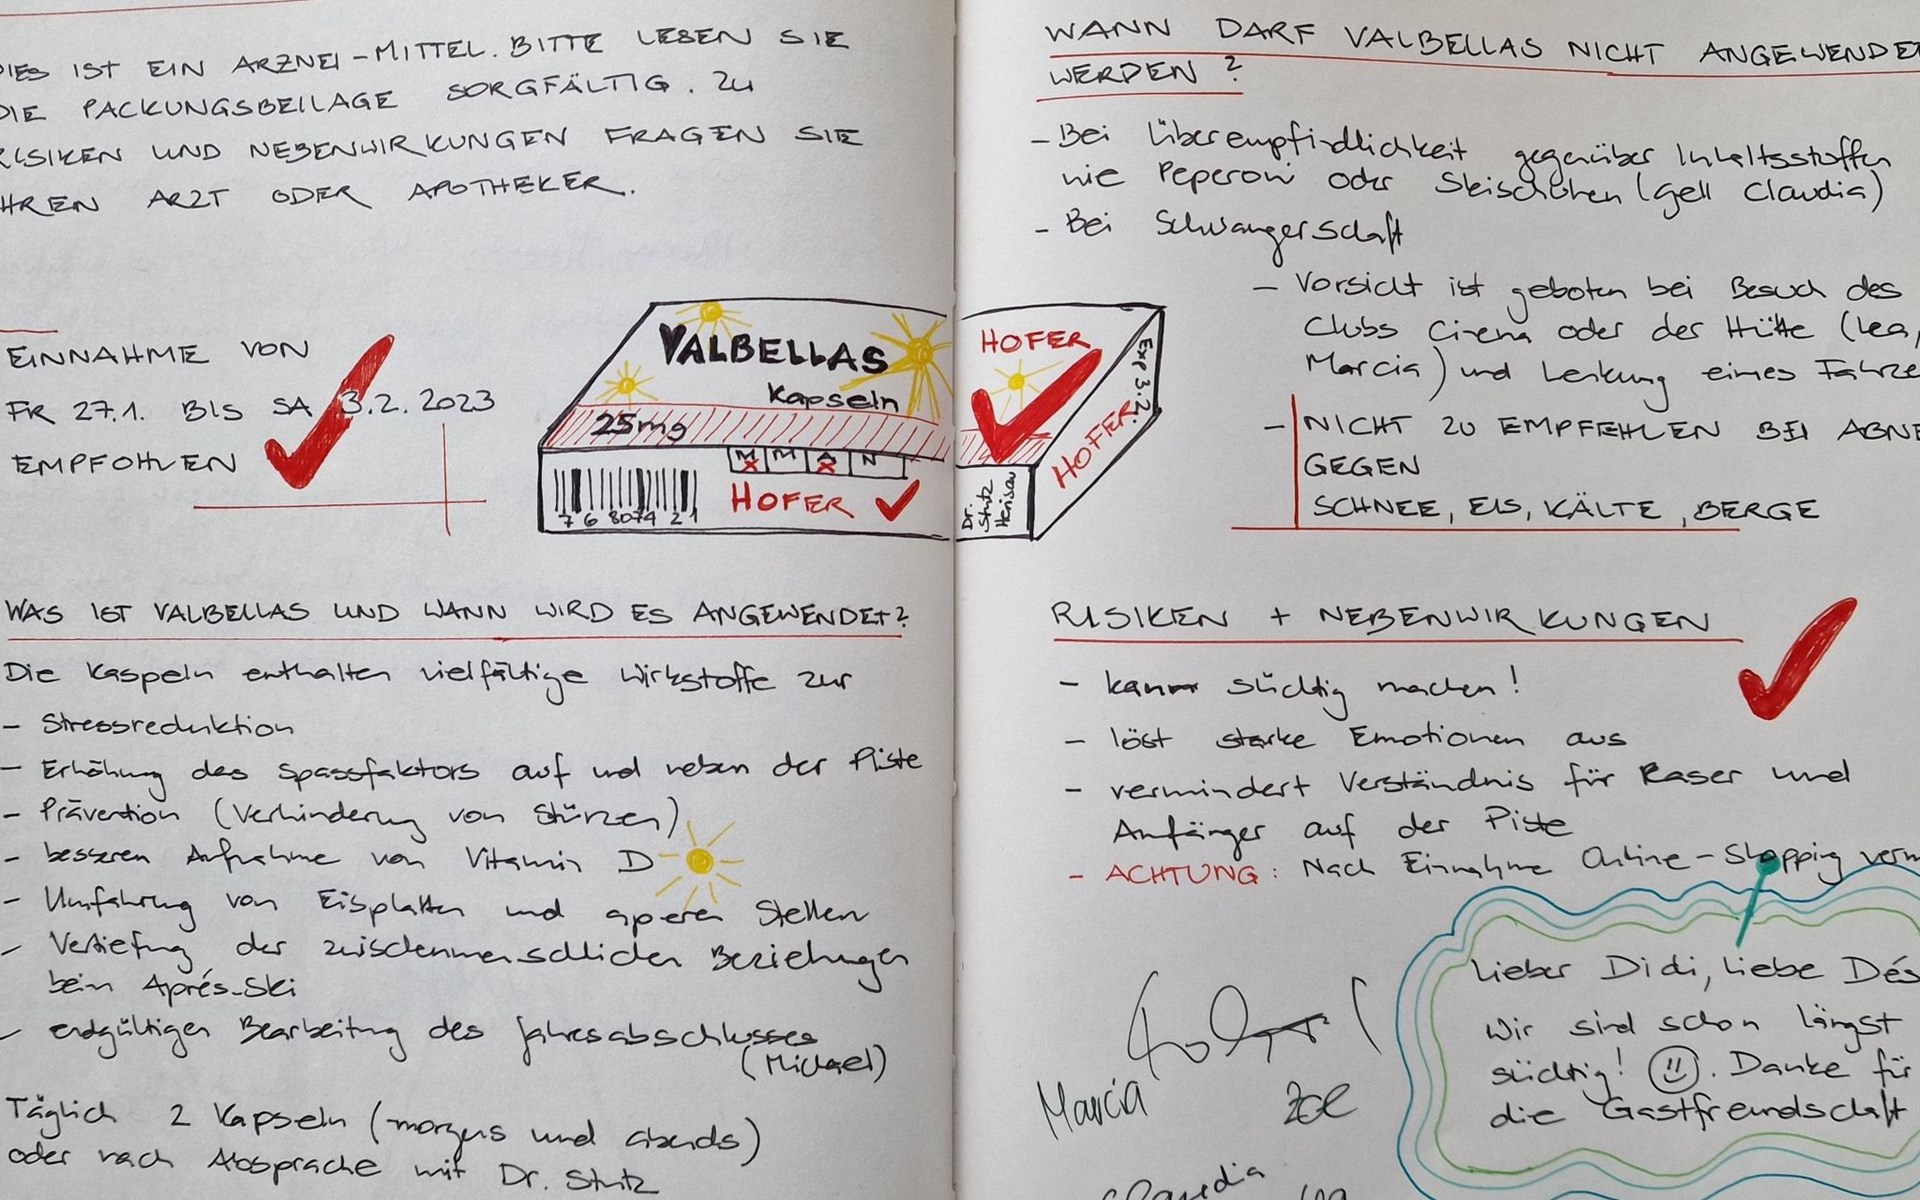 DIES IST EIN ARZNEI-MITTEL. BITTE LESEN SIE
DIE PACKUNGSBEILAGE SORGFÄLTIG. ZU
RISIKEN UND NEBENWIRKUNGEN FRAGEN SIE
IHREN ARZT ODER APOTHEKER.
EINNAHME VON
FR 27.1. BIS SA 3.2.2023
EMPFOHLEN
VALBELLAS
Kapseln
25mg
M M A N
HOFER
7 68074 21
HOFER
Exp 3.2.
HOFER
Dr.
Stutz
Herisau
WAS IST VALBELLAS UND WANN WIRD ES ANGEWENDET?
Die Kaspeln enthalten vielfältige Wirkstoffe zur
- Stressreduktion
- Erhöhung des Spassfaktors auf und neben der Piste
- Prävention (Verhinderung von Stürzen)
- besseren Aufnahme von Vitamin D
- Umfahrung von Eisplatten und aperen Stellen
- Vertiefung der zwischenmenschlichen Beziehungen
beim Aprés-Ski
- endgültigen Bearbeitung des Jahresabschlusses
(Michael)
Täglich 2 Kapseln (morgens und abends)
oder nach Absprache mit Dr. Stutz
WANN DARF VALBELLAS NICHT ANGEWENDET
WERDEN?
- Bei Überempfindlichkeit gegenüber Inhaltsstoffen
wie Peperoni oder Skischuhen (gell Claudia)
- Bei Schwangerschaft
- Vorsicht ist geboten bei Besuch des
Clubs Cinema oder der Hütte (Lea,
Marcia) und Lenkung eines Fahrze
- NICHT ZU EMPFEHLEN BEI ABNE
GEGEN
SCHNEE, EIS, KÄLTE, BERGE
RISIKEN + NEBENWIRKUNGEN
- kann süchtig machen!
- löst starke Emotionen aus
- vermindert Verständnis für Raser und
Anfänger auf der Piste
- ACHTUNG: Nach Einnahme Online-Shopping verm
Lieber Didi, liebe Dés
Wir sind schon längst
süchtig! Danke für
die Gastfreundschaft
Marcia Zoe
Claudia Lea